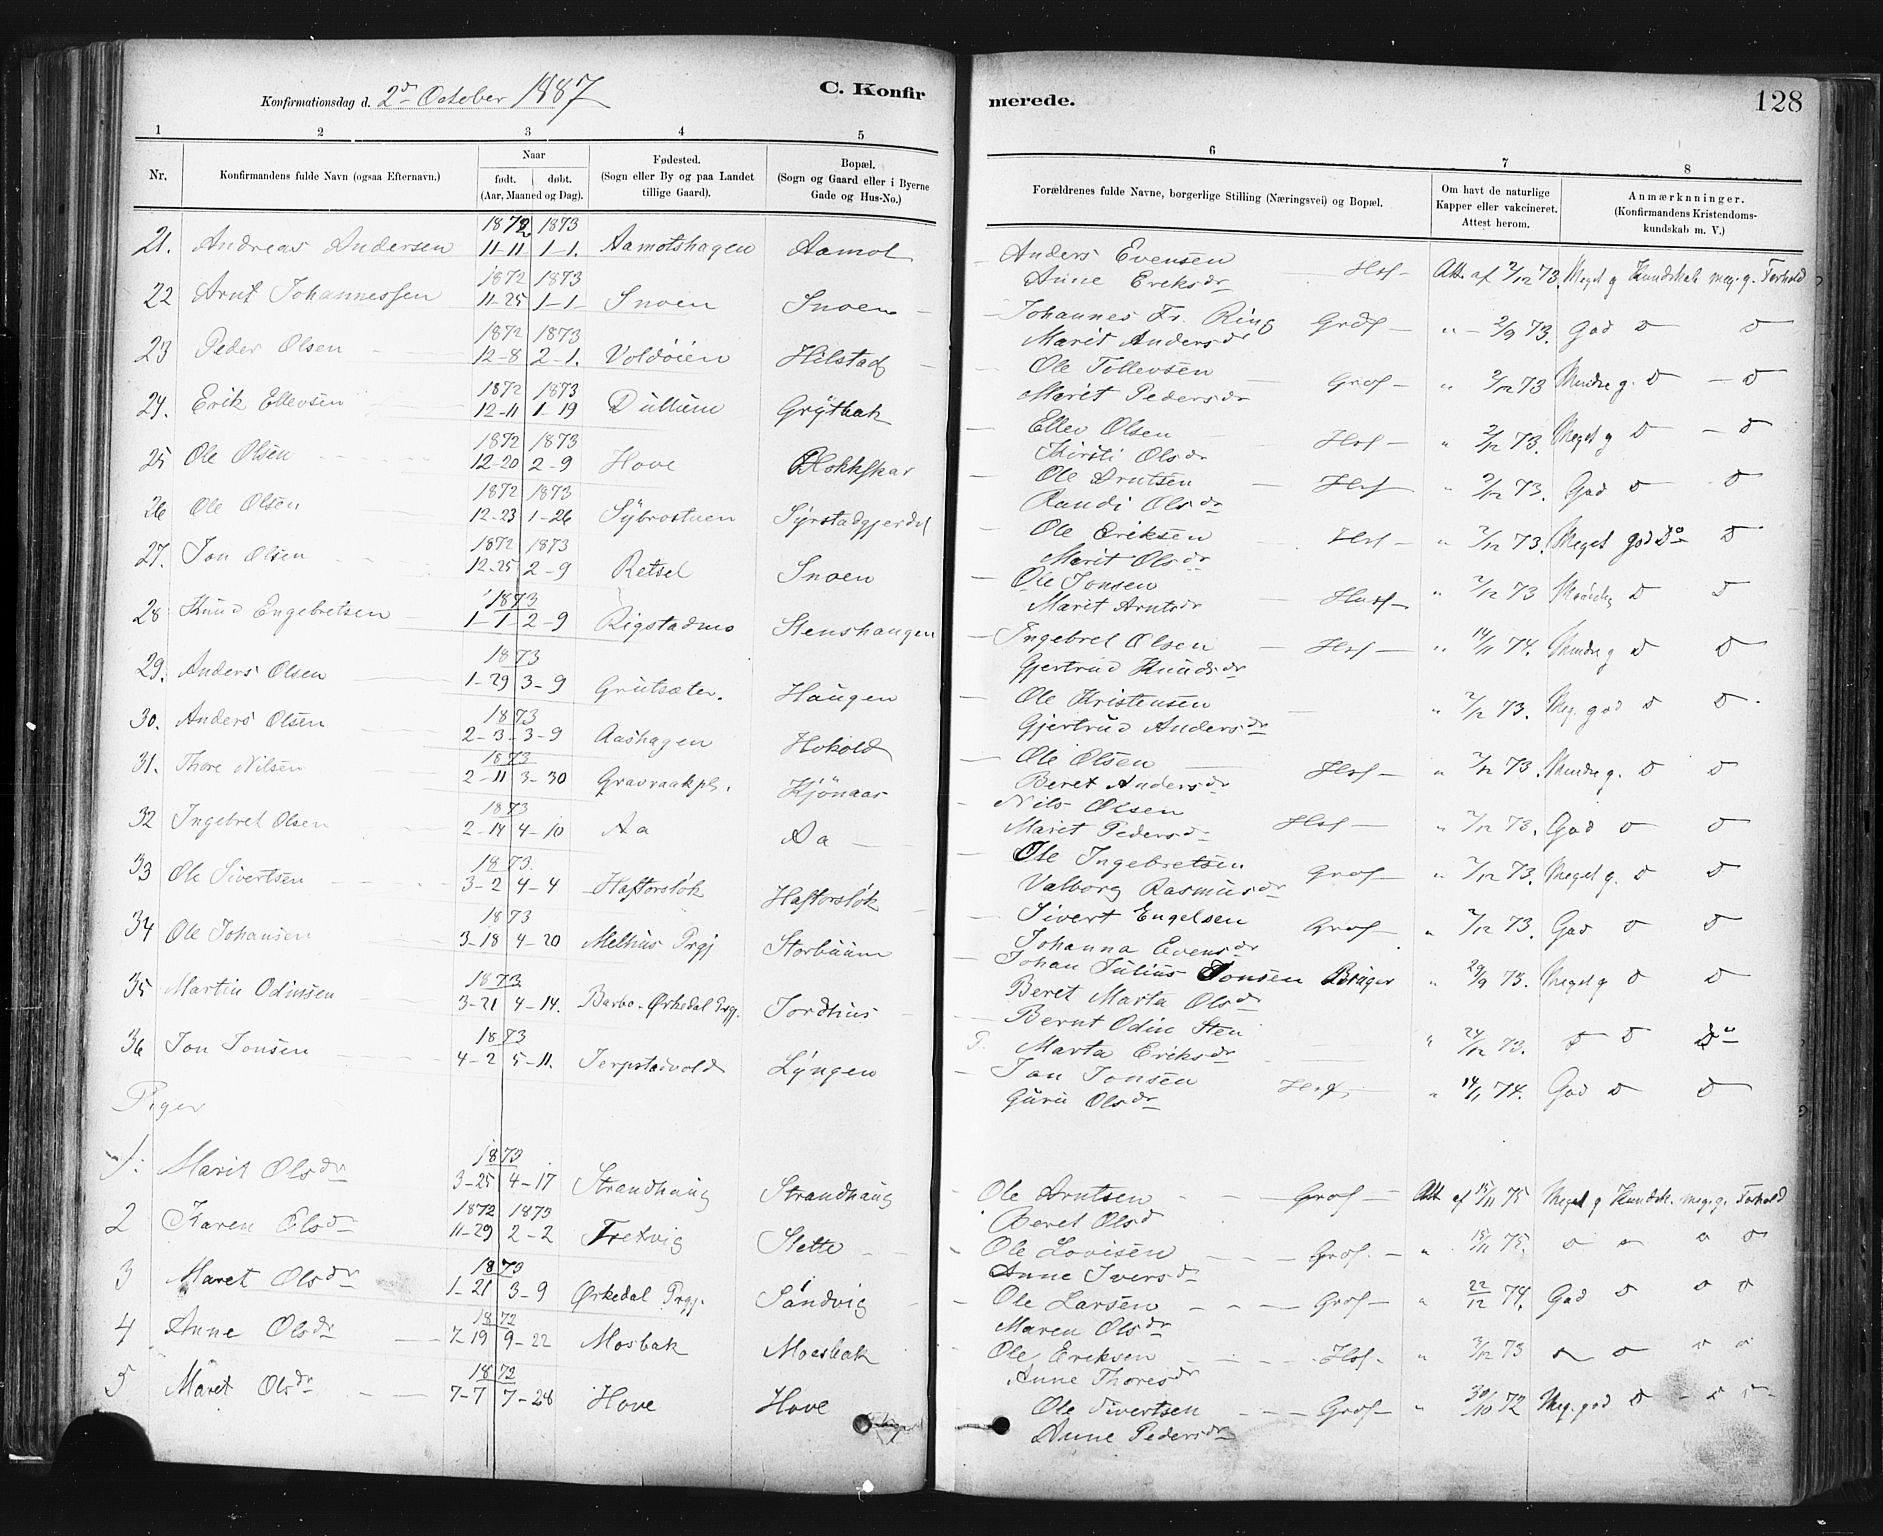 Konfirmationsdag d. 2den October 1887
C. Konfirmerede.
128
1 2 3 4 5 6 7 8
Nr.
Konfirmandens fulde Navn (ogsaa Efternavn).
Naar
født. døbt.
(Aar, Maaned og Dag).
Fødested.
(Sogn eller By og paa Landet
tillige Gaard).
Bopæl.
(Sogn og Gaard eller i Byerne
Gade og Hus-No.)
Forældrenes fulde Navne, borgerlige Stilling (Næringsvei) og Bopæl.
Om havt de naturlige
Kapper eller vakcineret.
Attest herom.
Anmærknninger.
(Konfirmandens Kristendoms-
kundskab m. V.)
21. Andreas Andersen 1872 11-11 1873 1-1. Aamotshagen Aamot Anders Evensen Anne Eriksdr Hsf Att. af 2/12 73. Meget g Kundskab meg. g. Forhold
22 Arnt Johannessen 1872 11-25 1873 1-1 Snoen Snoen Johannes Fr. Ring Marit Andersdr Grdf " 2/9 73. God D D
23 Peder Olsen 1872 12-8 1873 2-1. Voldöien Hilstad Ole Tollevsen Marit Pedersdr Grof " 2/12 73 Mindre g. D D
24. Erik Ellevsen 1872 12-11 1873 1-19 Dullum Grÿtbak Ellev Olsen Kirsti Olsdr Hsf " 2/12 73. Meget g D D
25 Ole Olsen 1872 12-20 1873 2-9 Hove Blokkskar Ole Arntsen Randi Olsdr Hsf " 2/12 73. God D D
26 Ole Olsen 1872 12-23 1873 1-26 Sÿbrostuen Syrstadgjerdet Ole Eriksen Marit Olsdr Hsf " 2/12 73. Meget god Do D
27. Jon Olsen 1872 12-25 1873 2-9 Retsel Snoen Ole Jonsen Marit Arntsdr Husf " 2/12 73 D D
28 Knud Engebretsen 1873 1-1 2-9 Rigstadmo Stenshaugen Ingebret Olsen Gjertrud Knudsdr Hsf " 14/11 74. Mindre g D D
29. Anders Olsen 1873 1-29 3-9 Grutsæter. Haugen Ole Kristensen Gjertrud Andersdr " 2/12 73. Meg. god D D.
30. Anders Olsen 1873 2-3 3-9 Aashagen Hokold Ole Olsen Beret Andersdr Hsf " 2/12 73. Mindre g. D D
31. Thore Nilsen 1873 2-11 3-30 Gravraakpl. Kjönaas Nils Olsen Marit Pedersdr Hsf " 2/12 73. God D D
32 Ingebret Olsen 1873 2-14 4-10 Aa Aa Ole Ingebretsen Valborg Rasmusdr Grof " 2/12 73. Meget g. D D
33 Ole Sivertsen 1873 3-2 4-4 Haftorslök Haftorslök Sivert Engelsen Johanna Evensdr Grof " 2/12 73. God D D
34 Ole Johansen 1873 3-18 4-20 Melhus Prgj Storbuum Johan Julius Jonsen Beret Marta Olsdr Bruger " 29/9 75. Meget g D D
35 Martin Odinsen 1873 3-21 4-14. Barbo - Ørkedal Prgj. Jordhus Bernt Odin Sten Marta Eriksdr " 24/12 73. D D Do
36 Jon Jonsen 1873 4-2 5-11. Jerpstadvold Lÿngen Jon Jonsen Guru Olsdr Hsf. " 14/11 74. God D D
Piger
1. Marit Olsdr 1873 3-25 4-17 Strandhaug Strandhaug Ole Arntsen Beret Olsd Grof Att af 15/11 75 Meget g Kundsk. meg. g. Forhold
2 Karen Olsdr 1872 11-29 1873 2-2 Tretvig Slette Ole Lovisen Anne Iversdr Grof. " 15/11 75. D D D D
3 Maret Olsdr 1873 1-21 3-9 Ørkedal Prgj. Sandvig Ole Larsen Maren Olsdr Grof " 22/12 74. God D D D
4 Anne Olsdr 1872 7 19 9-22 Mosbak Moesbak Ole Eriksen Anne Thoresdr Hsf. " 3/12 73 D D D D
5 Maret Olsdr 1872 7-7 7-28 Hove Hove Ole Sivertsen Anne Pedersdr Grof " 30/10 72 Meg. god D D D